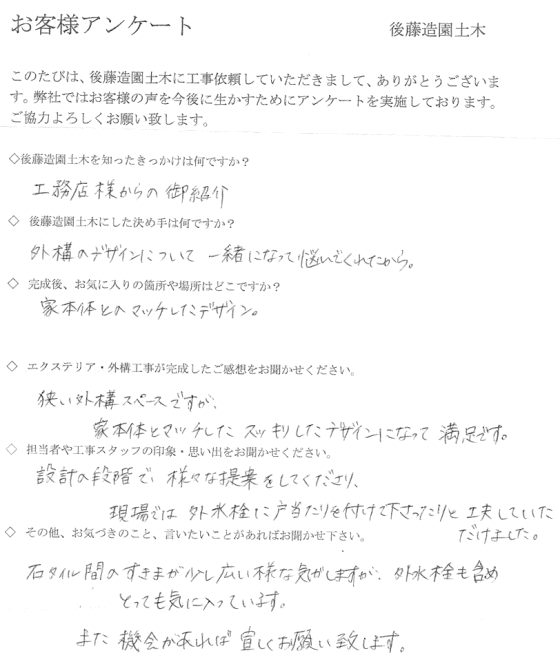 お客様アンケート
後藤造園土木
このたびは、後藤造園土木に工事依頼していただきまして、ありがとうございま
す。弊社ではお客様の声を今後に生かすためにアンケートを実施しております。
ご協力よろしくお願い致します。
◇後藤造園土木を知ったきっかけは何ですか？
工務店様からの御紹介
◇ 後藤造園土木にした決め手は何ですか？
外構のデザインについて 一緒になって悩んでくれたから。
◇ 完成後、お気に入りの箇所や場所はどこですか？
家本体とのマッチしたデザイン。
◇ エクステリア・外構工事が完成したご感想をお聞かせください。
狭い外構スペースですが、
家本体とマッチした スッキリしたデザインになって 満足です。
◇ 担当者や工事スタッフの印象・思い出をお聞かせください。
設計の段階で、様々な提案をしてくださり、
現場では 外水栓に戸当たりを付けて下さったりと 工夫していた
だけました。
◇ その他、お気づきのこと、言いたいことがあればお聞かせ下さい。
石タイル間のすきまが少し広い様な気がしますが、外水栓も含め
とっても気に入っています。
また 機会があれば 宜しくお願い致します。